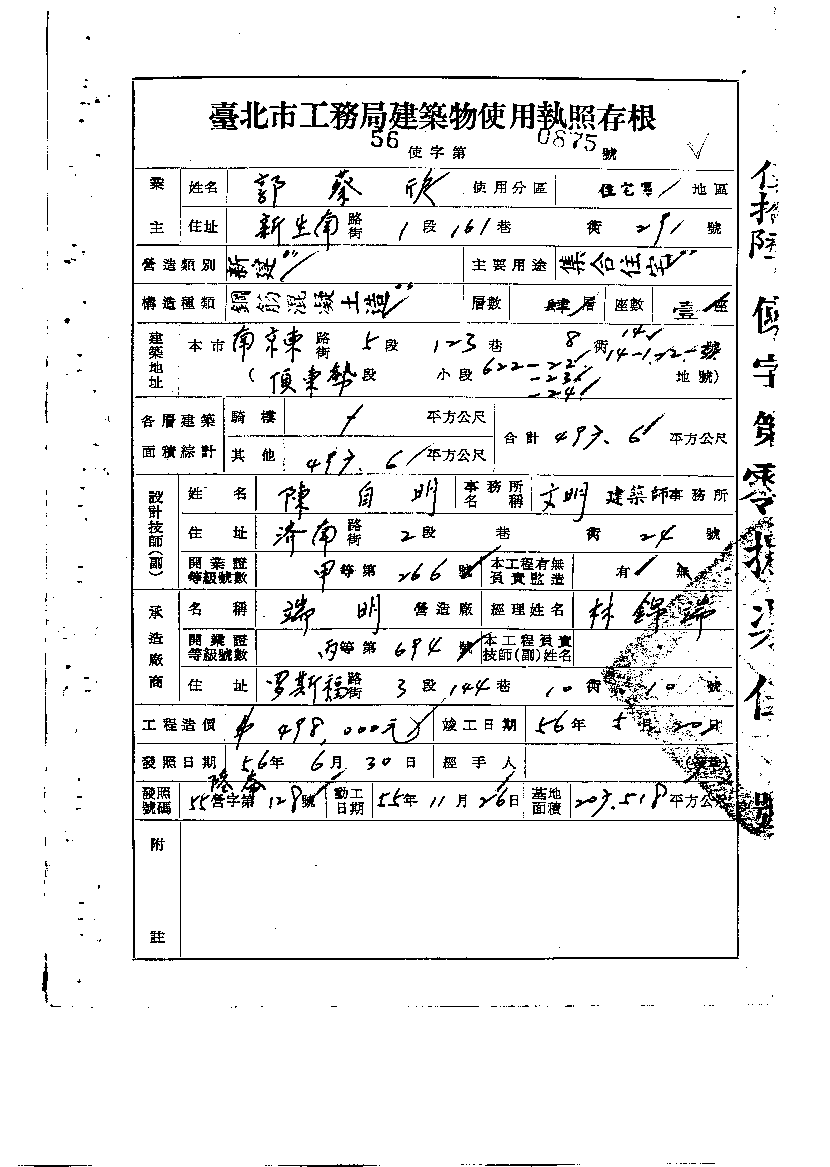 臺北市工務局建築物使用執照存根
56 使字第 0875 號
業主 姓名 郭蔡欣 使用分區 住宅區 地區
住址 新生南 路街 1 段 161 巷 衖 29 號
營造類別 新建 主要用途 集合住宅
構造種類 鋼筋混凝土造 層數 肆層 座數 壹座
建築地址 本市 南京東 路街 5 段 123 巷 8 衖 14 14-1,-2 號
( 頂東勢 段 小段 622-22 -23 -24 地號)
各層建築面積綜計 騎樓 平方公尺 合計 497.61 平方公尺
其他 497.61 平方公尺
設計技師(副) 姓名 陳自明 事務所名稱 文明 建築師事務所
住址 濟南 路街 2 段 巷 衖 24 號
開業證等級號數 甲等第 266 號 本工程有無負責監造 有 無
承造廠商 名稱 瑞明 營造廠 經理姓名 林錦瑞
開業證等級號數 丙等第 694 號 本工程負責技師(副)姓名
住址 罗斯福 路街 3 段 144 巷 10 衖 10 號
工程造價 $498,000元 竣工日期 56年 5月 20日
發照日期 56年 6月 30日 經手人
發照號碼 55營字第 128 號 動工日期 55年 11月 26日 基地面積 207.518 平方公尺
附註
伍拾陸 使字第零捌柒伍 號